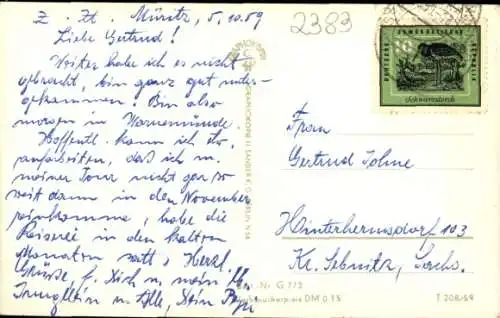 Z. Zt. Müritz, 5.10.59
Liebe Gertrud!
Weiter habe ich es nicht
gebracht, bin ganz gut unter-
gekommen! Bin also
morgen in Warnemünde.
Hoffentl. kann ich
daß ich m.
meiner Tour nicht gar so
weit dann in den November
reinkomme, habe die
Reiserei in den kalten
Monaten satt. Herzl.
Grüße f. Dich u. mein
u. Alle, Dein
2383
DEUTSCHE DEMOKRATISCHE REPUBLIK
10
Schwarzstorch
Frau
Gertrud Johne
Hinterhermsdorf 103
Kr. Sebnitz, Sachs.
Best.-Nr. G 772
Verbraucherpreis DM 0,15
T 208/59